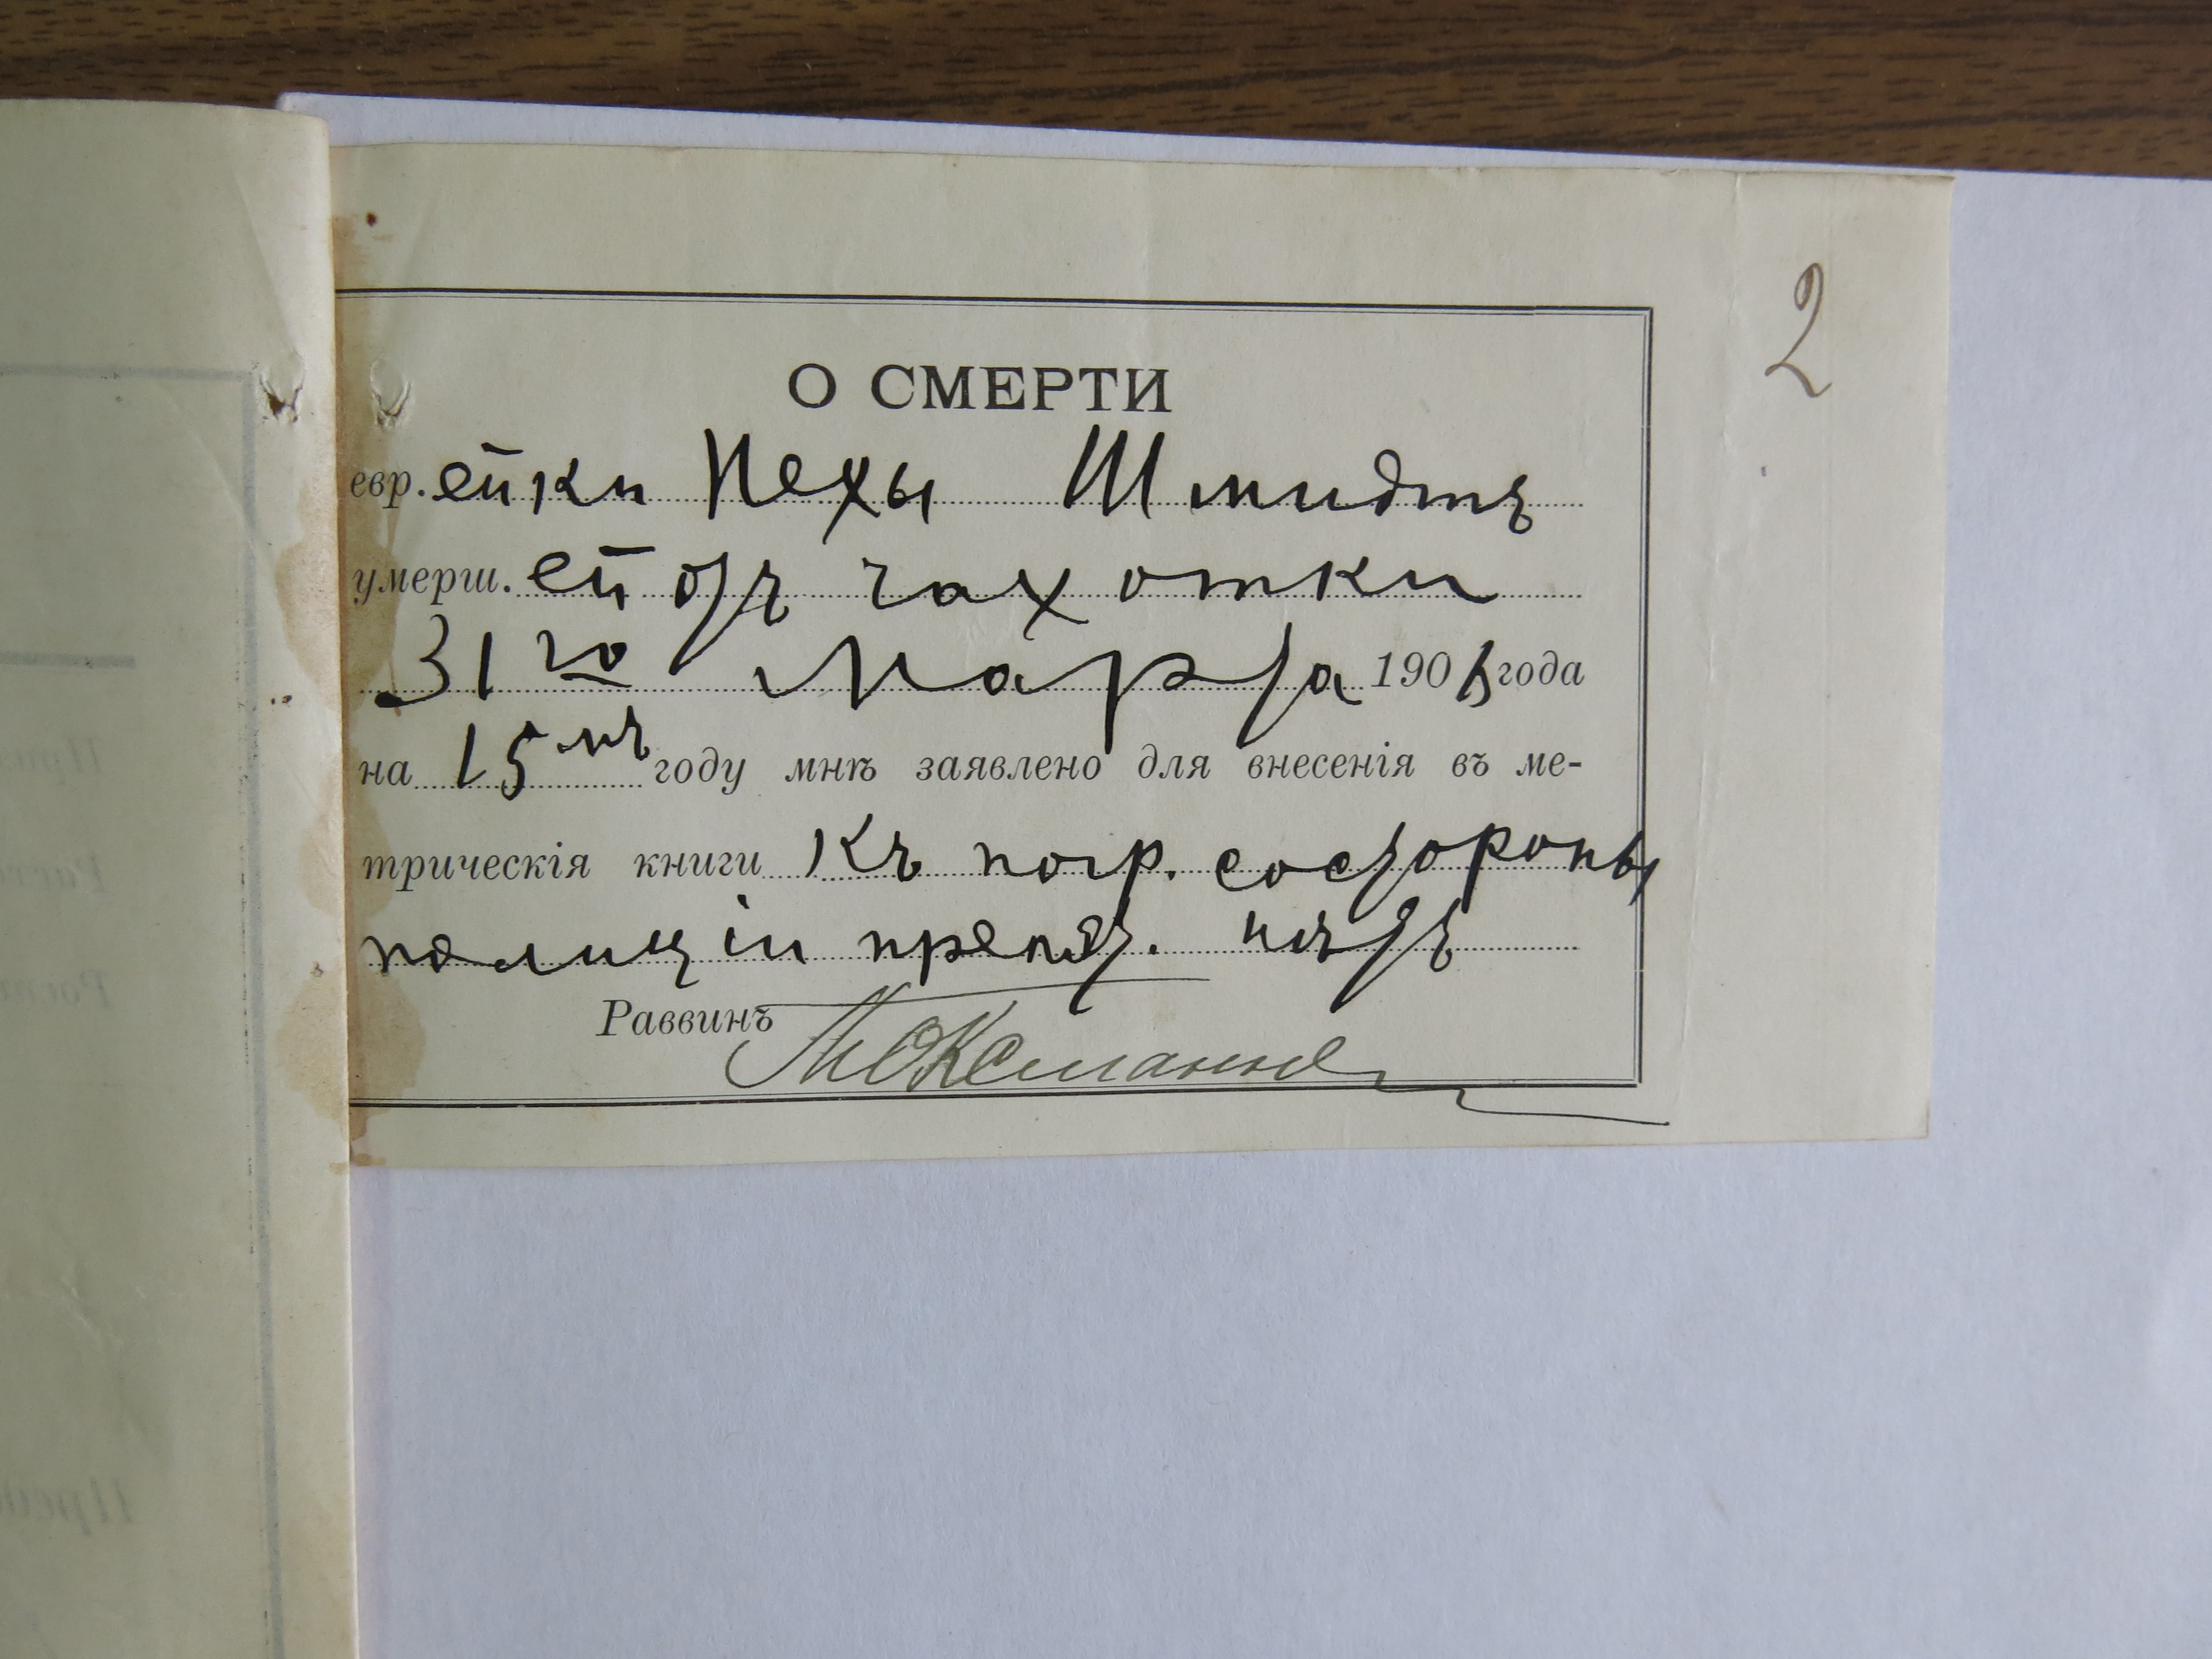 2
О СМЕРТИ
евр. ейки Нехы Шмидтъ
умерш. ей отъ чахотки
31 го Марта 1906 года
на 15 мъ году мнѣ заявлено для внесенія въ ме-
трическія книги Къ погр. состороны
полиціи препят. нѣтъ
Раввинъ